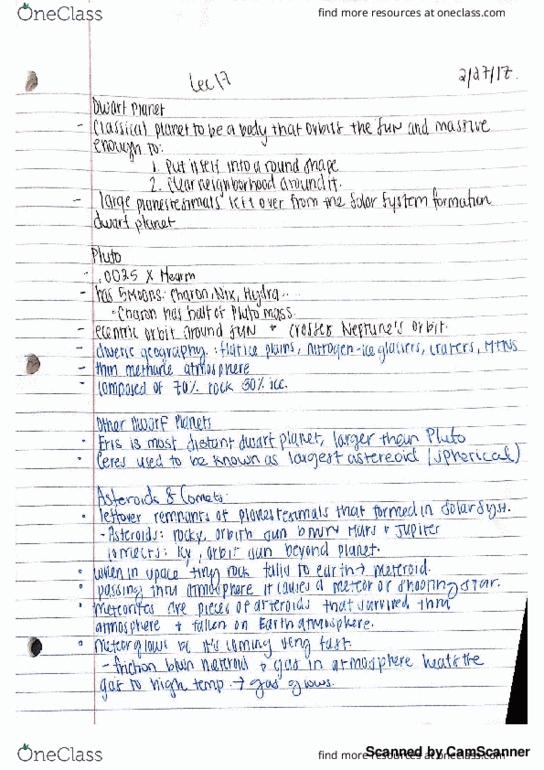 OneClass
find more resources at oneclass.com
Lec 17
2/27/17.
Dwarf Planet
- Classical planet to be a body that orbits the sun and massive
enough to:
1. Put itself into a round shape
2. clear neighborhood around it.
- large planetesimals left over from the Solar System formation
dwarf planet
Pluto
- .0025 X Mearth
- has 5 moons: Charon, Nix, Hydra..
• Charon has half of Pluto mass.
- eccentric orbit around sun + crosses Neptune's orbit.
- diverse geography: flat ice plains, nitrogen-ice glaciers, craters, MTNS
- thin methane atmosphere
- composed of 70% rock 30% ice.
Other Dwarf Planets
• Eris is most distant dwarf planet, larger than Pluto
• Ceres used to be known as largest astereoid (spherical)
Asteroids & Comets:
• leftover remnants of planetesimals that formed in Solar Syst.
- Asteroids: rocky, orbit sun btwn Mars + Jupiter
comets: icy, orbit sun beyond planet.
• when in space tiny rock falls to earth → meteroid.
• passing thru atmosphere it causes a meteor or shooting star.
• Meteorites are pieces of asteroids that survived thru
atmosphere + fallen on Earth atmosphere.
• Meteor glows bc it's coming very fast.
- friction btwn meteroid + gas in atmosphere heats the
gas to high temp. → gas glows.
OneClass
find more resources at oneclass.com
Scanned by CamScanner